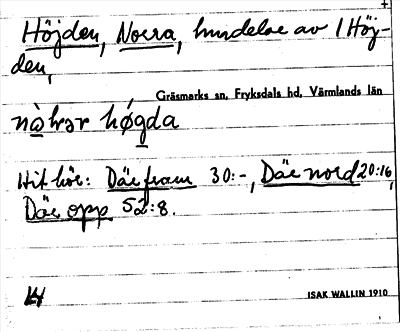 Höjden, Norra, hundelse av 1 Höj-
den,
Gräsmarks sn, Fryksdals hd, Värmlands län
nàhrər høgda
Hit hör: Däe fram 30:-, Däe nord 20:16,
Däe opp 52:8.
ISAK WALLIN 1910